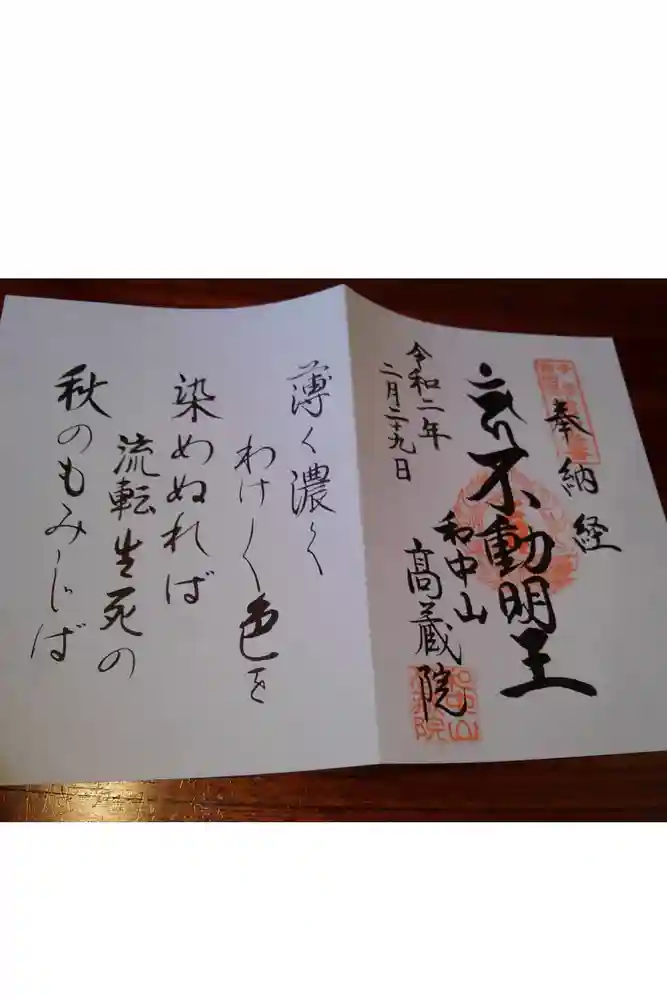 奉納経
不動明王
和中山
髙蔵院
令和二年
二月二十九日
薄く濃く
色を
染めぬれば
流転生死の
秋のもみじば